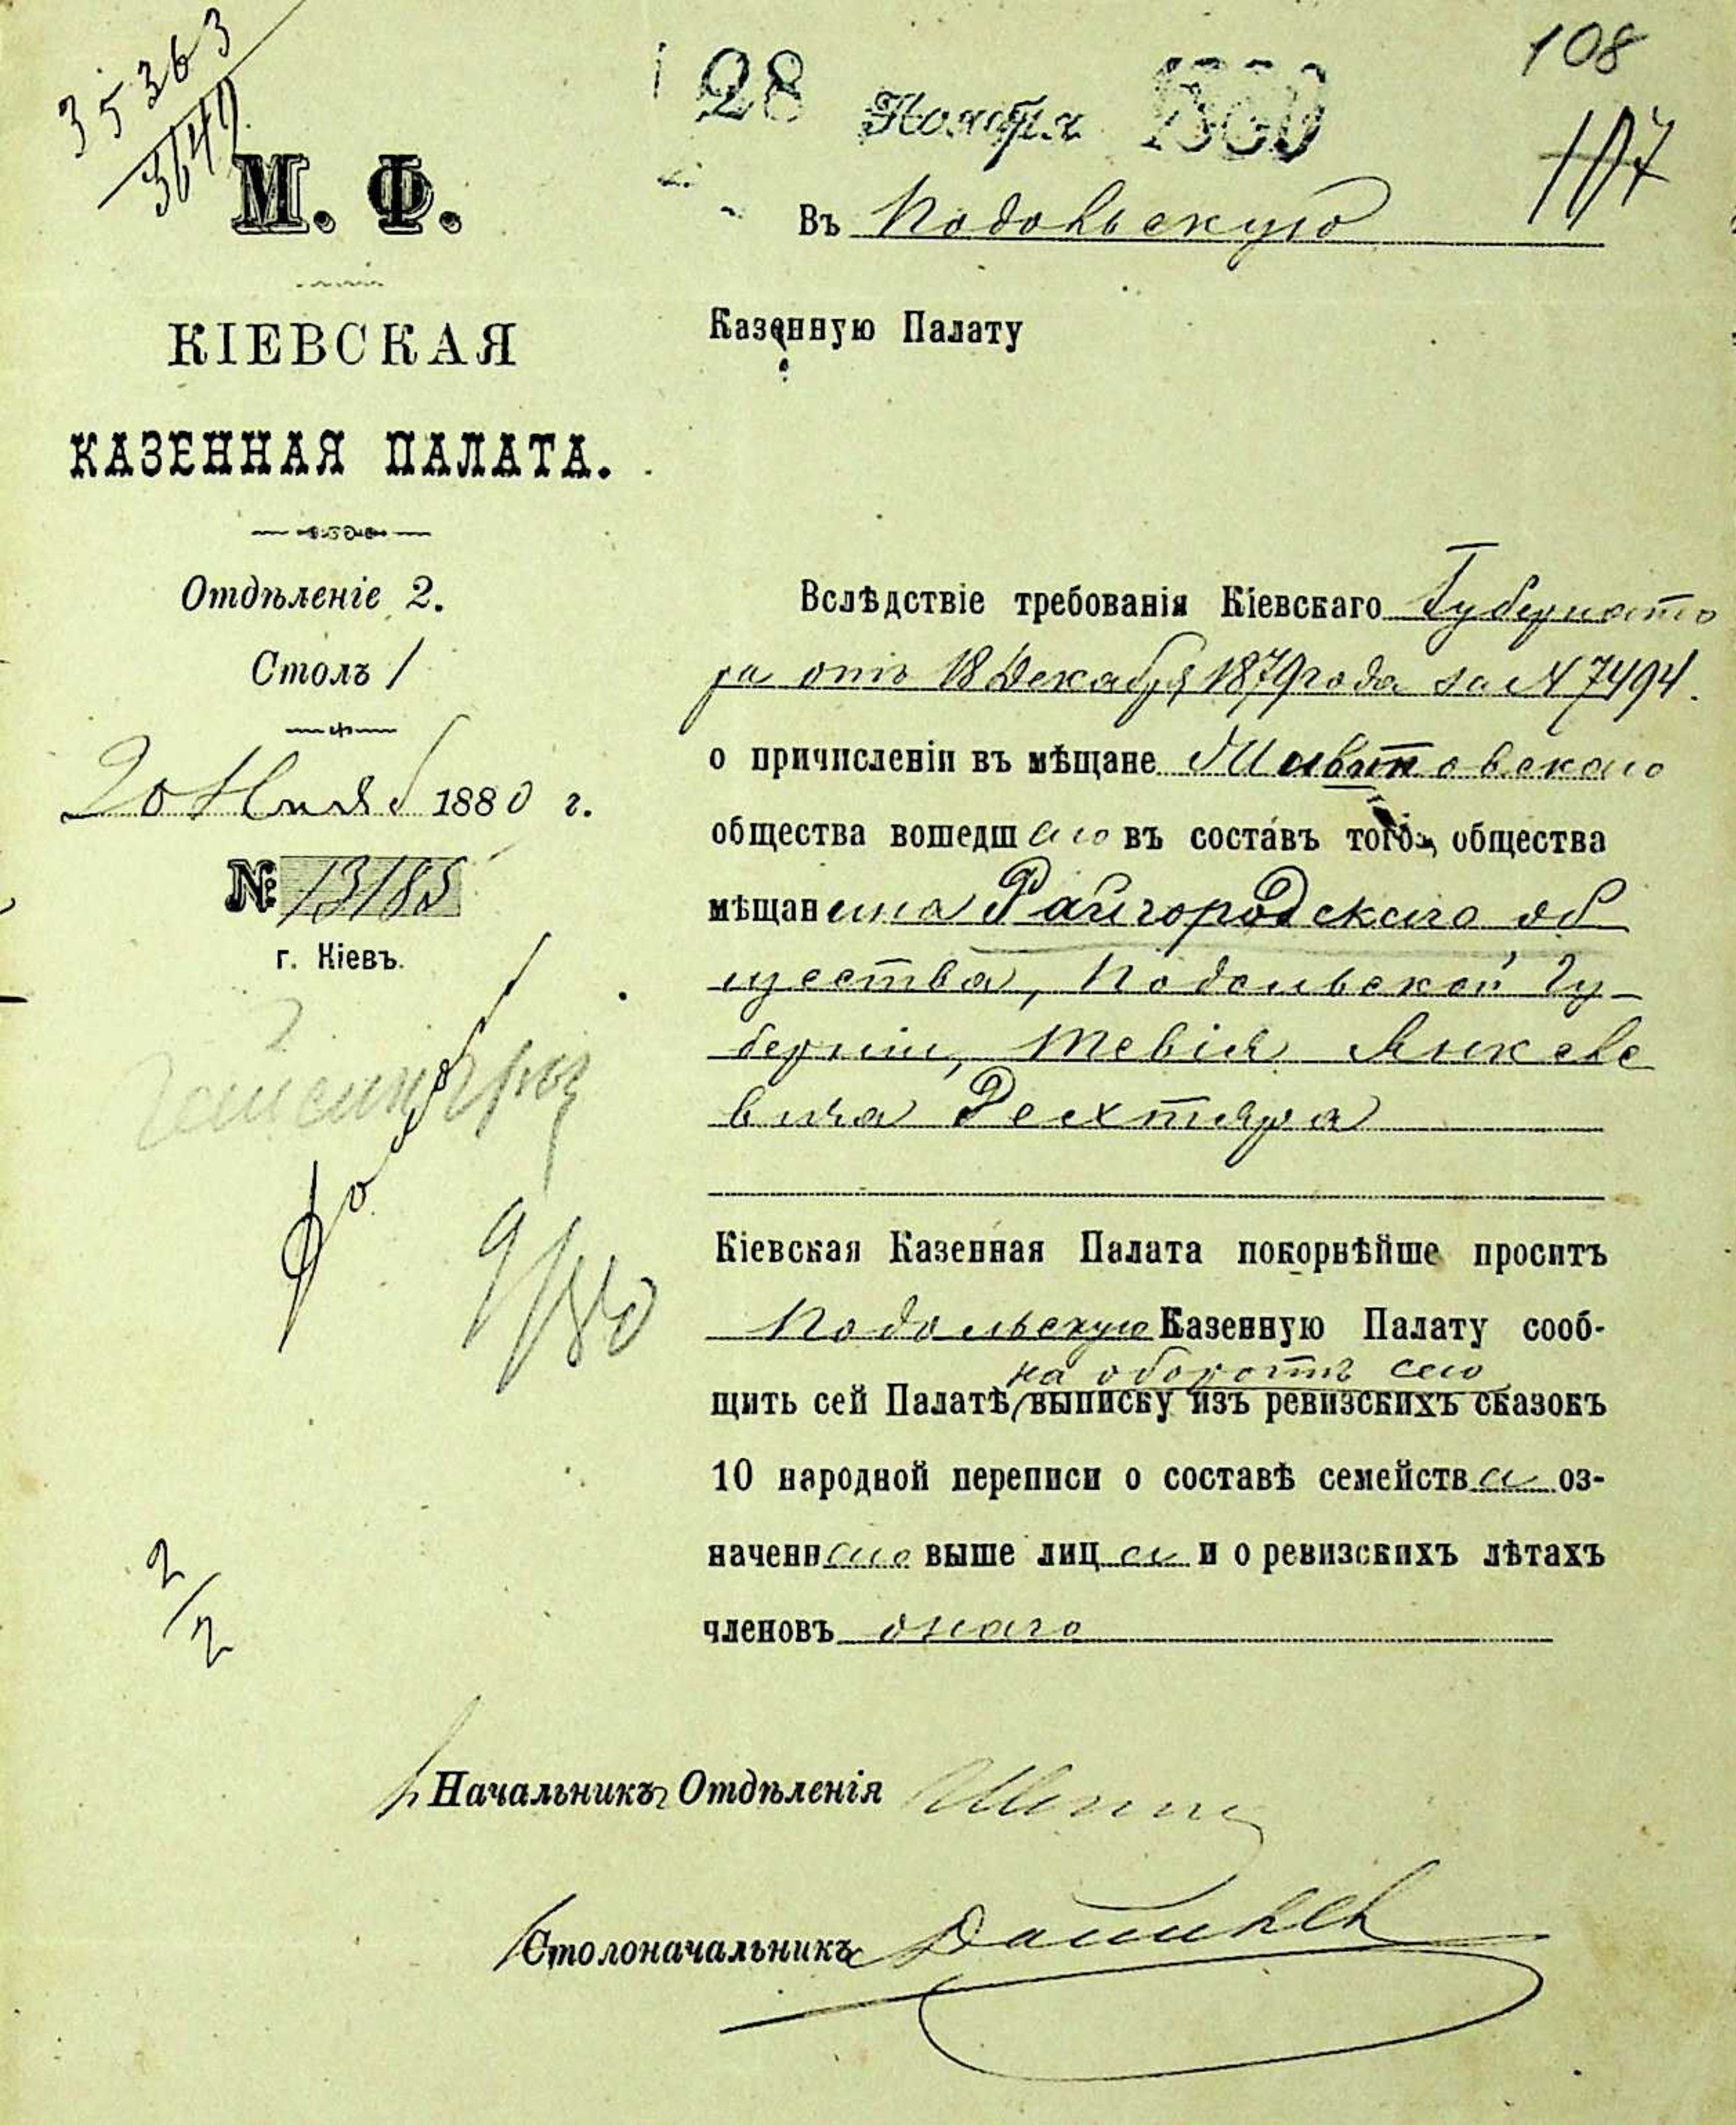 35363
3649
28 Ноября 1880
108
107
М. Ф.
КІЕВСКАЯ
КАЗЕННАЯ ПАЛАТА.
Отдѣленіе 2.
Столъ 1
20 Нояб 1880 г.
№ 13185
г. Кіевъ.
9/80
2/2
Въ Подольскую
Казенную Палату
Вслѣдствіе требованія Кіевскаго Губернато
ра отъ 18 Декабря 1879 года за № 7494.
о причисленіи въ мѣщане
общества вошедшаго въ составъ того общества
мѣщанина Райгородскаго об
щества, Подольской Гу-
берніи, Тевія Янкеле
вича Рехтяра
Кіевская Казенная Палата покорнѣйше проситъ
Подольскую Казенную Палату сооб-
на оборотѣ сего
щить сей Палатѣ выписку изъ ревизскихъ сказокъ
10 народной переписи о составѣ семейства оз-
наченнаго выше лица и о ревизскихъ лѣтахъ
членовъ онаго
Начальникъ Отдѣленія
Столоначальникъ